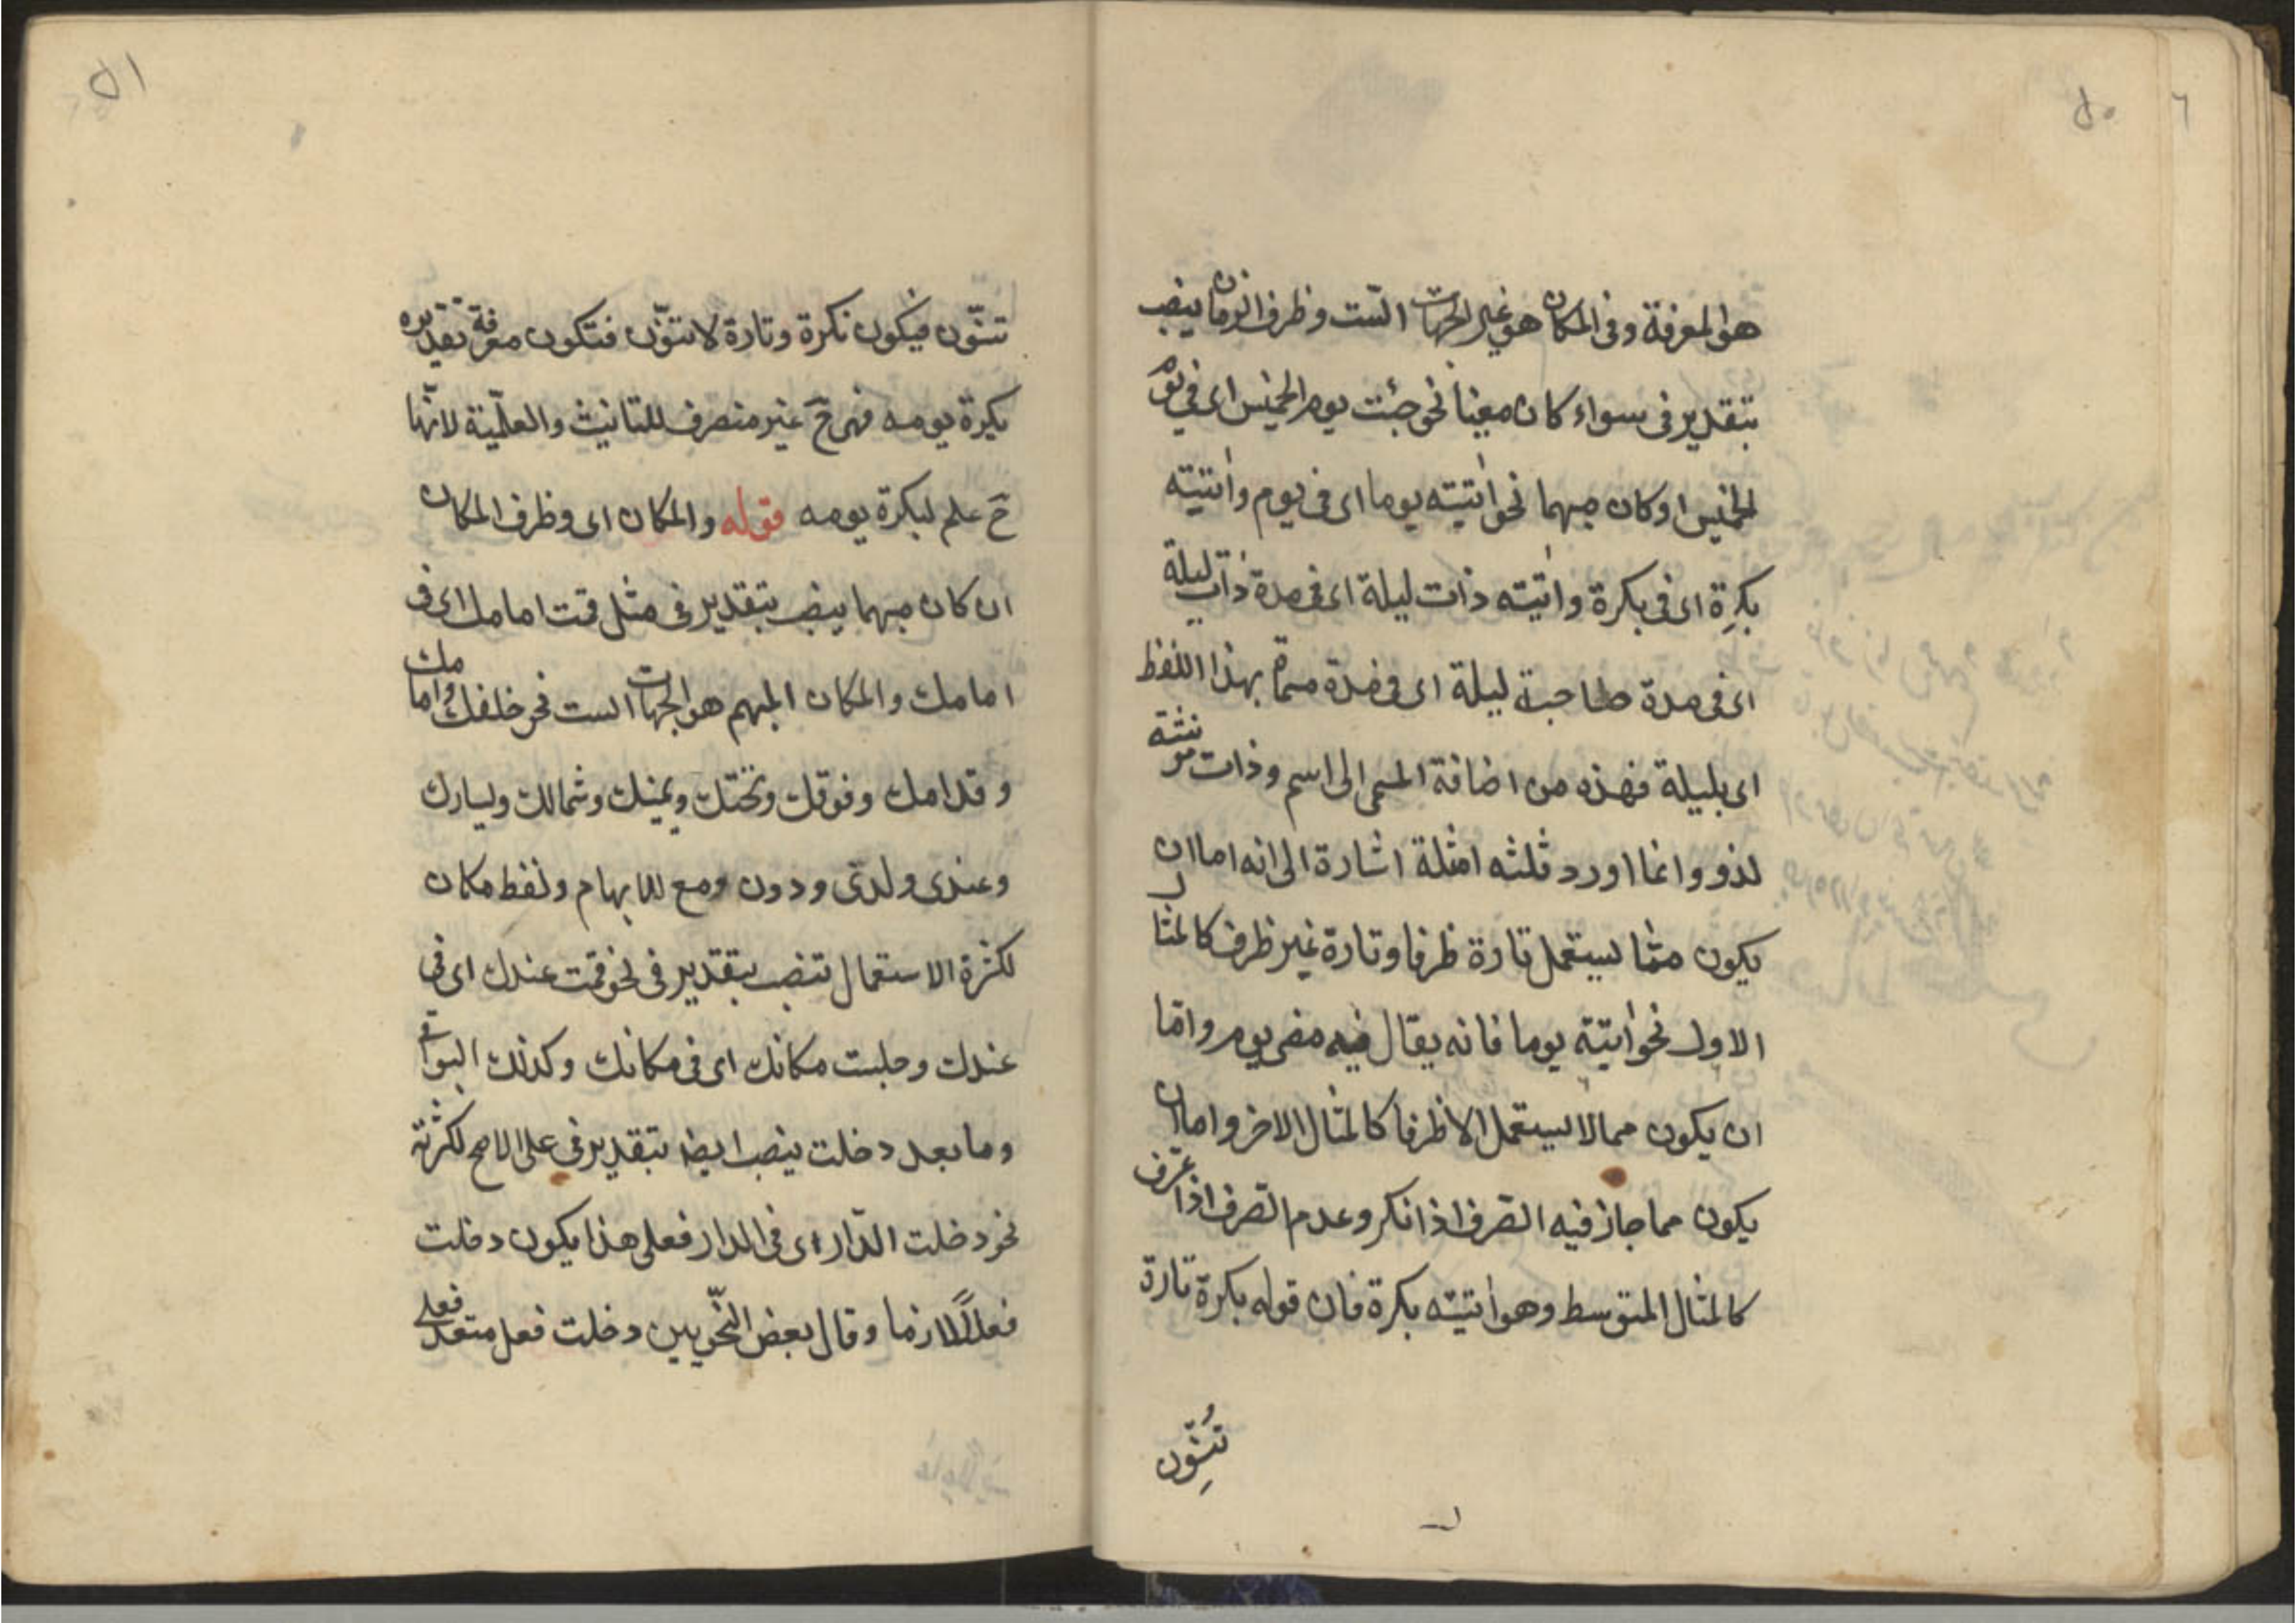 ٥٠
٦
هو المعرفة وفى المكان هو غير الجهات الست وظرف الزمان ينصب
بتقدير فى سواء كان معينا نحو جئت يوم الخميس اى فى يوم
الخميس او كان مبهما نحو اتيته يوما اى فى يوم واتيته
بكرة اى فى بكرة واتيته ذات ليلة اى فى مدة ذات ليلة
اى فى مدة صاحبة ليلة اى فى مدة مسماة بهذا اللفظ
اى بليلة فهذه من اضافة المسمى الى اسم وذات مونثة
لذو وانما اورد ثلثه امثلة اشارة الى انه اما ان
يكون مما يستعمل تارة ظرفا وتارة غير ظرف كالمثال
الاول نحو اتيته يوما فانه يقال فيه مضى يوم واما
ان يكون مما لا يستعمل الا ظرفا كالمثال الاخر واما ان
يكون مما جاز فيه الصرف اذا نكر وعدم الصرف اذا عرف
كالمثال المتوسط وهو اتيته بكرة فان قوله بكرة تارة
تُنَوِّن
٥١
تنوّن فيكون نكرة وتارة لا تنوّن فتكون معرفة تقديره
بكرة يومه فهى ح غير منصرف للتانيث والعلمّية لانّها
ح علم لبكرة يومه قوله والمكان اى وظرف المكان
ان كان مبهما ينصب بتقدير فى مثل قمت امامك اى فى
امامك والمكان المبهم هو الجهات الست نحو خلفك وامامك
وقدامك وفوقك وتحتك ويمينك وشمالك ويسارك
وعندى ولدى ودون ومع للابهام ولفظ مكان
لكثرة الاستعمال تنصب بتقدير فى نحو قمت عندك اى فى
عندك وجلست مكانك اى فى مكانك وكذلك البواقى
وما بعد دخلت ينصب ايضا بتقدير فى على الاصح لكثرته
نحو دخلت الدّار اى فى الدار فعلى هذا يكون دخلت
فعلًا لازما وقال بعض النحّويين دخلت فعل متعد فعلى